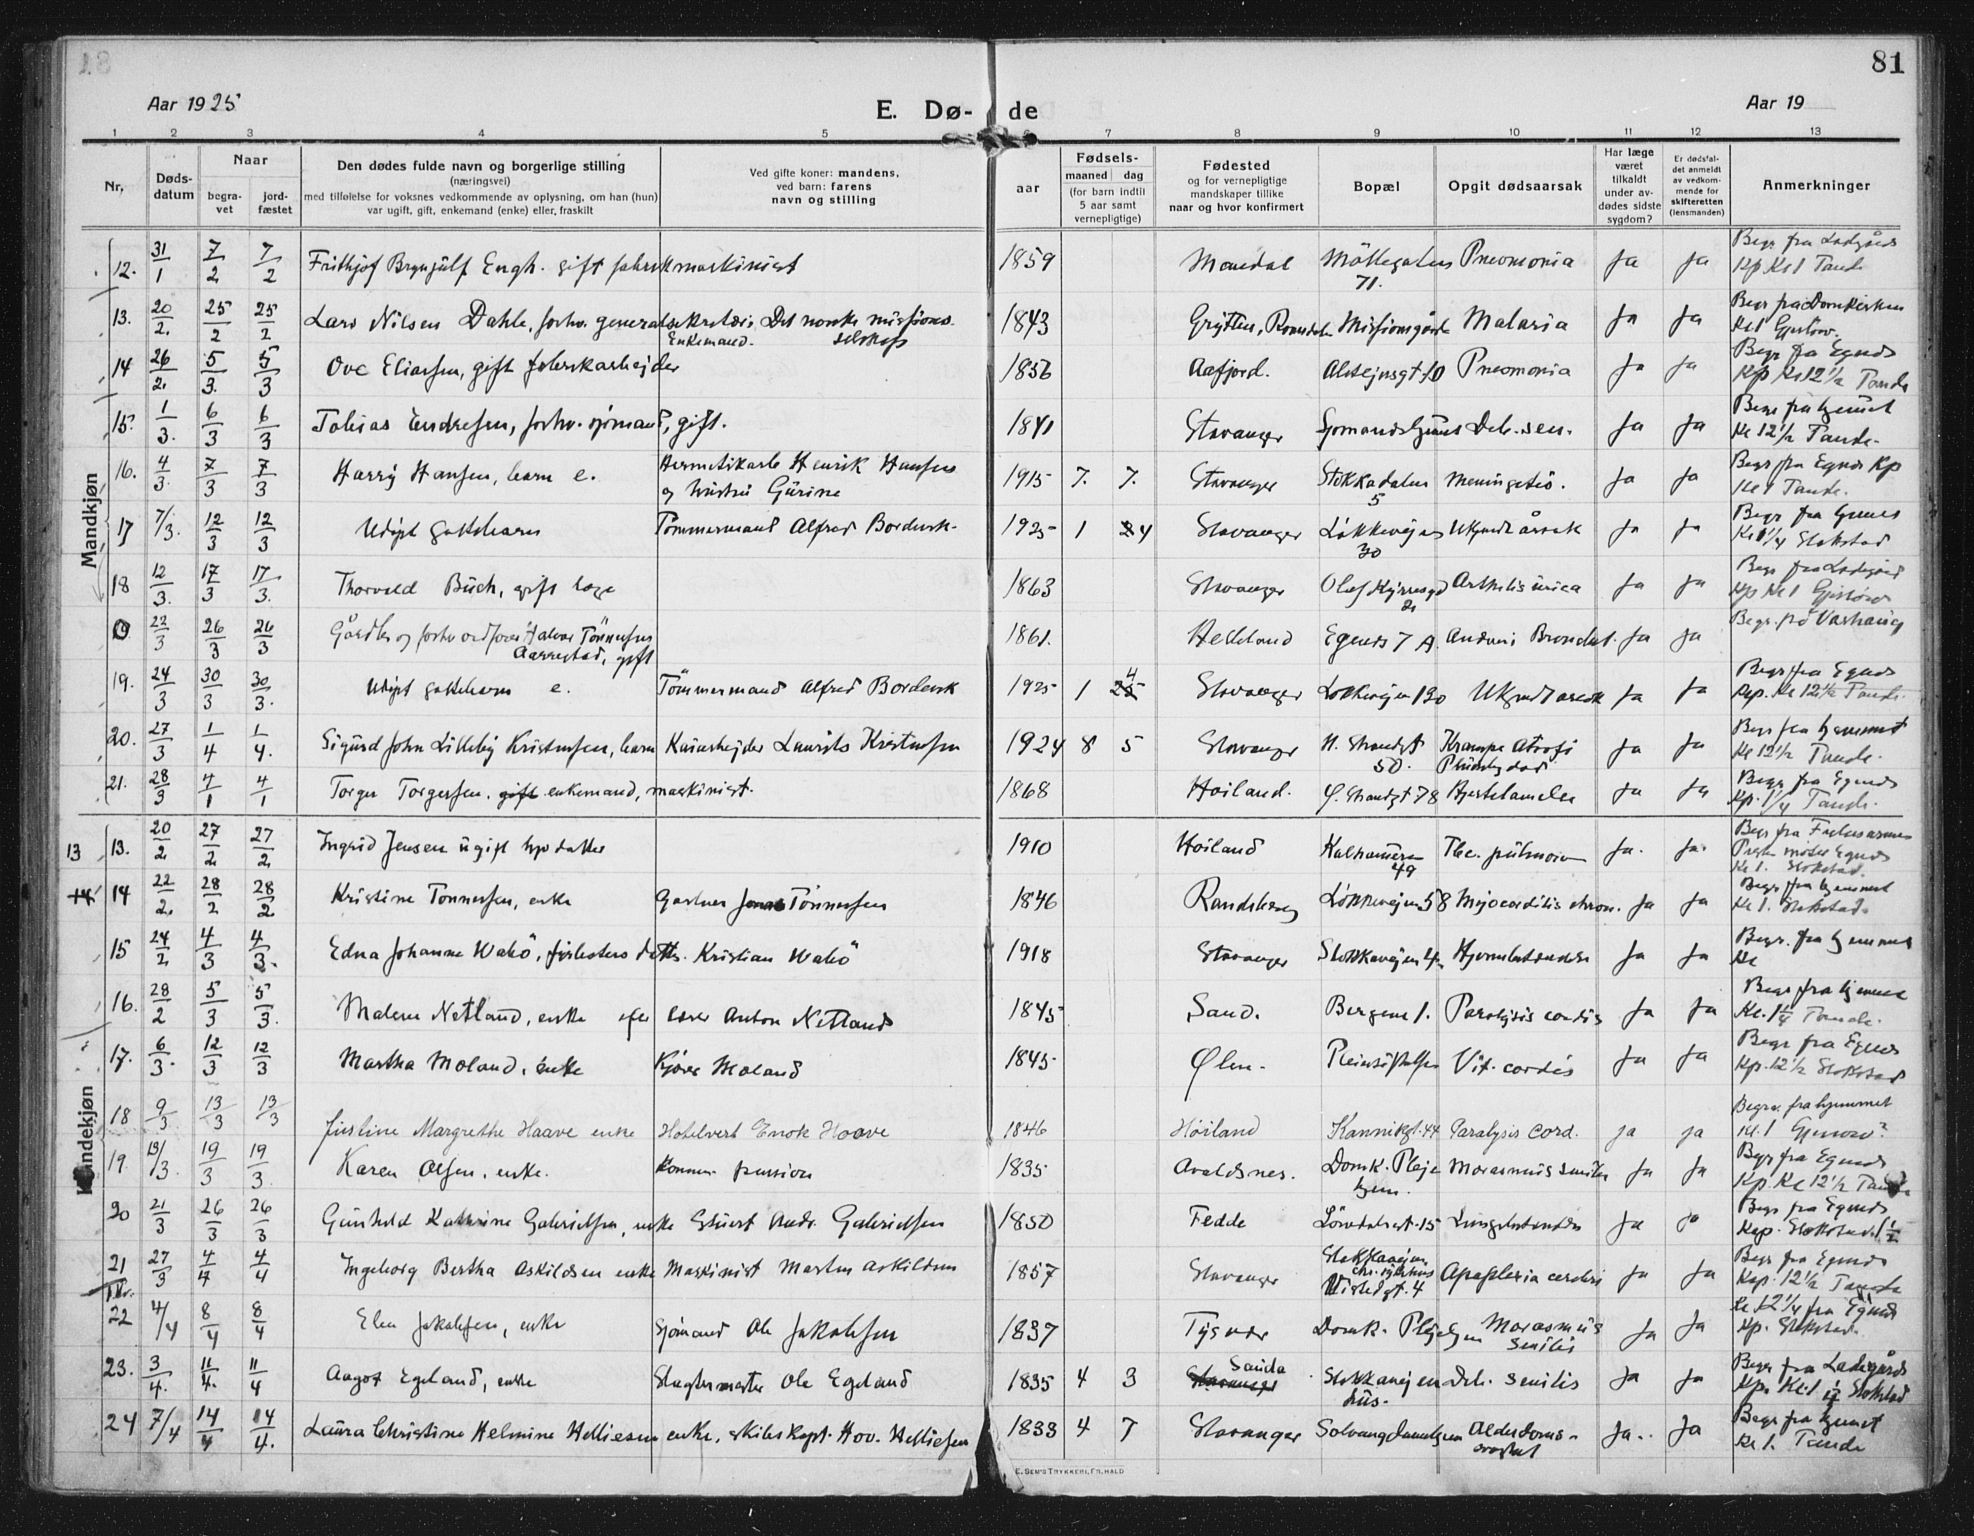 81
Aar 1925
E. Dø- de
Aar 19
1 2 3 4 5 6 7 8 9 10 11 12 13
Nr.
Døds-
datum
Naar
begra-
vet
jord-
fæstet
Den dødes fulde navn og borgerlige stilling
(næringsvei)
med tilføielse for voksnes vedkommende av oplysning, om han (hun)
var ugift, gift, enkemand (enke) eller fraskilt
Ved gifte koner: mandens,
ved barn: farens
navn og stilling
aar
Fødsels-
maaned dag
(for barn indtil
5 aar samt
vernepligtige)
Fødested
og for vernepligtige
mandskaper tillike
naar og hvor konfirmert
Bopæl
Opgit dødsaarsak
Har læge
været
tilkaldt
under av-
dødes sidste
sygdom?
Er dødsfal-
det anmeldt
av vedkom-
mende for
skifteretten
(lensmanden)
Anmerkninger
Mandkjøn
12. 31/1 7/2 7/2 Frithjof Brynjulf Engh. gift fabrikmaskinist 1859 Møllegaten 71. Pneomonia Ja Ja Begr fra Ladegårds Kp Kl 1 Tande
13. 20/2. 25/2 25/2 Lars Nilsen Dahle, forhv. generalsekretær i Det norske missions- selskap Enkemand. 1843 Grytten, Romsdalen Missionsgården Malaria Ja Ja Begr fra Domkirken Kl 1
14 26/2. 5/3. 5/3 Ove Eliassen, gift fabrikarbejder 1856 Aafjord. Pneomonia Ja Ja Begr fra Egnds Kp Kl 12 1/2 Tande
15. 1/3. 6/3 6/3 Tobias Endresen, forhv. sjømand, gift. 1841 Stavanger Sjomandshjems Deb. sen. Ja Ja Begr fra hjemmet Kl 12 1/2 Tande.
16. 4/3. 7/3 7/3 Harry Hansen, barn e. Hermetikarb Henrik Hansen og hustru Gurine 1915 7. 7. Stavanger Stokkadalen 5 Meningitis. Ja Ja Begr fra Egnds Kp Kl 1 Tande.
17 7/3. 12/3 12/3 Udøpt guttebarn Tømmermand Alfred Bordevik. 1925 1 24 Stavanger Løkkevejen 30 Ukjendt årsak Ja Ja Begr fra hjemmet Kl 1 1/4 Slokstad
18 12/3. 17/3 17/3. Thorvald Buch, gift læge 1863 Stavanger Olaf Kyrresgd 2 Arthritis urica Ja Ja Begr fra Ladegård Kp Kl 1
22/3 26/3 26/3 Gårdbr og forhv ordfører Halvor Tønnesen Aarrestad, gift 1861. Helleland Egends 7 A. Ja Ja Begr. på Varhaug
19. 24/3 30/3 30/3. Udøpt guttebarn e. Tømmermand Alfred Bordevik 1925 1 4 Stavanger Løkkevejen 130 Ukjendt årsak Ja Ja Begr fra Egnds Kp. Kl 12 1/2 Tande.
20. 27/3 1/4 1/4. Sigurd John Lilleby Kristensen, barn Kaiarbejder Laurits Kristensen 1924 8 5 Stavanger N. Strandgt 50. Krampe Atrofi Ja Ja Begr fra hjemmet Kl 12 1/2 Tande.
21. 28/3 4/1 4/1 Torger Torgersen. gift enkemand, maskinist. 1868 Høiland. Ø. Strandgt 78 Hjertelamelse Ja Ja Begr fra Egnds Kp. 1 1/4 Tande.
Kvindekjøn
13 13. 20/2. 27/2 27/2 Ingrid Jensen ugift 1910 Høiland Kalhammeren 49 Tbc. pulmon Ja. Ja. Begr fra Frelsesarmes Kl 1. Slokstad.
14 14 22/2. 28/2 28/2 Kristine Tønnessen, enke Gartner Jonas Tønnessen 1846 Randeberg Løkkevejen 58 Myocarditis chron. Ja Ja Begr fra hjemmet Kl 1. Slokstad.
15 24/2 4/3 4/3. Edna Johanne Wabø, Kristian Wabø 1918 Stavanger Stokkavejen Ja Ja Begr. fra hjemmet Kl
16. 28/2 5/3 5/3. Malene Netland, enke efter Anton Netland 1845 Sand. Bergene 1. Paralysis cordis Ja Ja Begr fra hjemmet Kl. 1 1/4 Tande.
17. 6/3. 12/3 12/3 Martha Moland, enke Moland 1845 Ølen. Vit. cordis Ja Ja Begr fra Egnds Kp. 12 1/2 Slokstad
18 9/3 13/3 13/3 Justine Margrethe Haave enke Hotelvert Enok Haave 1846 Høiland Kannikgt. 44 Paralysis cord. ja ja Begra. fra hjemmet kl. 1
19. 13/3. 19/3 19/3. Karen Olsen, enke. 1835 Avaldsnes. Domk. Pleje hjem. Marasmus senilis Ja Ja Begr fra Egnds Kp. Kl 12 1/2 Tande
20 21/3 26/3 26/3 Gunhild Katrine Gabrielsen, enke Gabrielsen 1850 Fedde Løvdalsgt. 15 Lungebetændelse Ja Ja Begr fra Egnds Kap. Slokstad. 1 1/2
21 27/3 4/4 4/4 Ingeborg Bertha Askildsen enke Maskinist Askildsen 1857 Stavanger Stokkavejen 4 Apoplexia cerebri Ja Ja Begr fra Egnds Kap. 12 1/2 Tande
22 4/4 8/4 8/4 Elen Jakobsen, enke Sjømand Ole Jakobsen 1837 Tysvær Domk. Plejehjem Marasmus Senilis Ja Ja Kl 12 1/4 fra Egnds Kp. Slokstad.
23. 3/4. 11/4. 11/4 Aagot Egeland, enke Slagtermester Ole Egeland 1835 4 3 Stavanger Sauda Stokkavejen hus. Deb. senilis Ja Ja Begr fra Ladegårds Kp. Kl. 1 1/2 Slokstad
24 7/4 14/4 14/4. Laura Christine Helmine Helliesen enke, skibskapt. Hov. Helliesen 1833 4 7 Stavanger Solvang Damehjem Alderdoms- Ja. Ja Begr fra hjemmet Kl 1. Tande
E. SEM'S TRYKKERI, FR.HALD